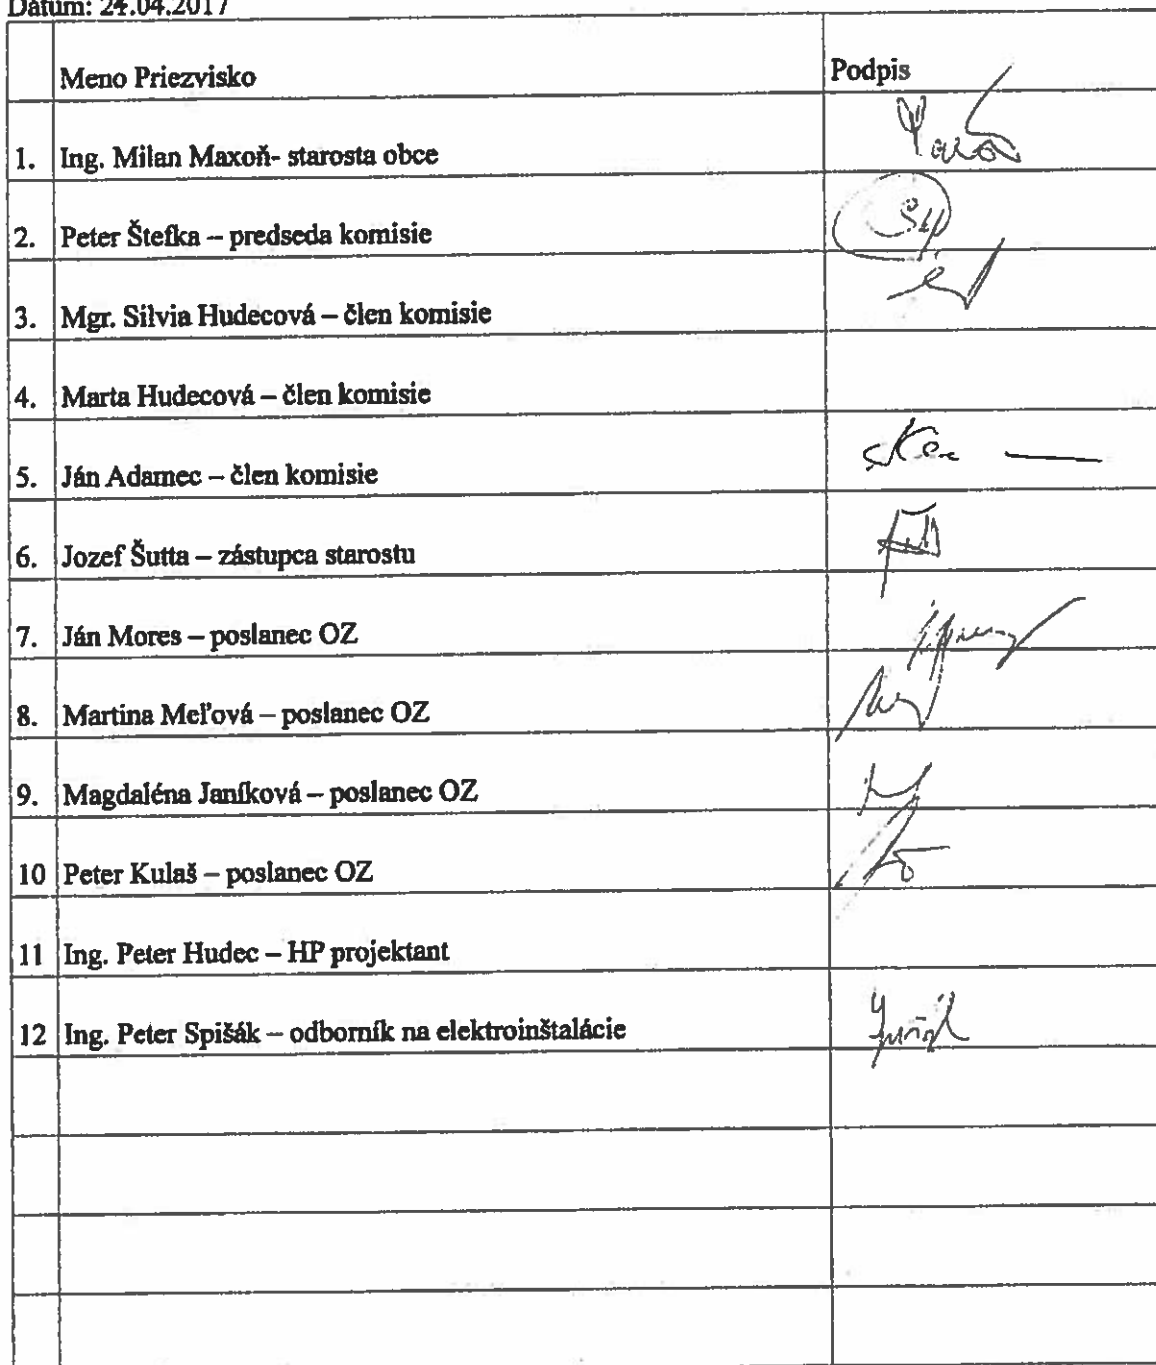 Datum: 24.04.2017
Meno Priezvisko Podpis
1. Ing. Milan Maxoň- starosta obce
2. Peter Štefka – predseda komisie
3. Mgr. Silvia Hudecová – člen komisie
4. Marta Hudecová – člen komisie
5. Ján Adamec – člen komisie
6. Jozef Šutta – zástupca starostu
7. Ján Mores – poslanec OZ
8. Martina Meľová – poslanec OZ
9. Magdaléna Janíková – poslanec OZ
10 Peter Kulaš – poslanec OZ
11 Ing. Peter Hudec – HP projektant
12 Ing. Peter Spišák – odborník na elektroinštalácie